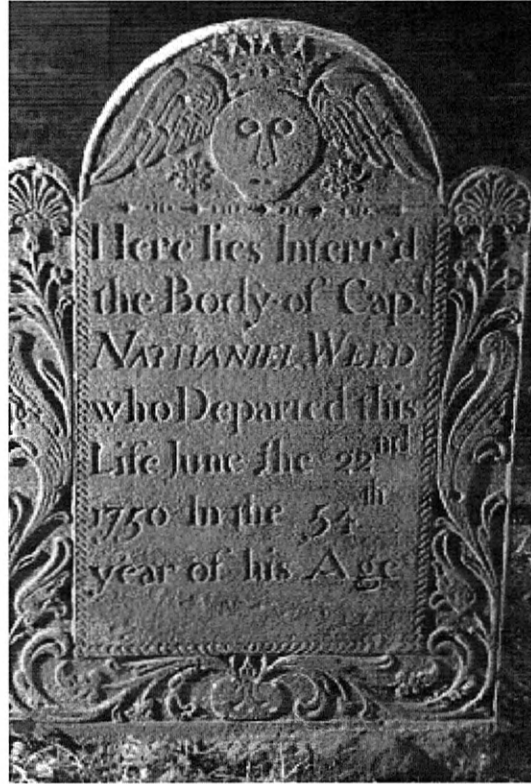 Here lies Interr'd
the Body of Capt
NATHANIEL WEED
who Departed this
Life June the 22nd
1750 In the 54th
year of his Age